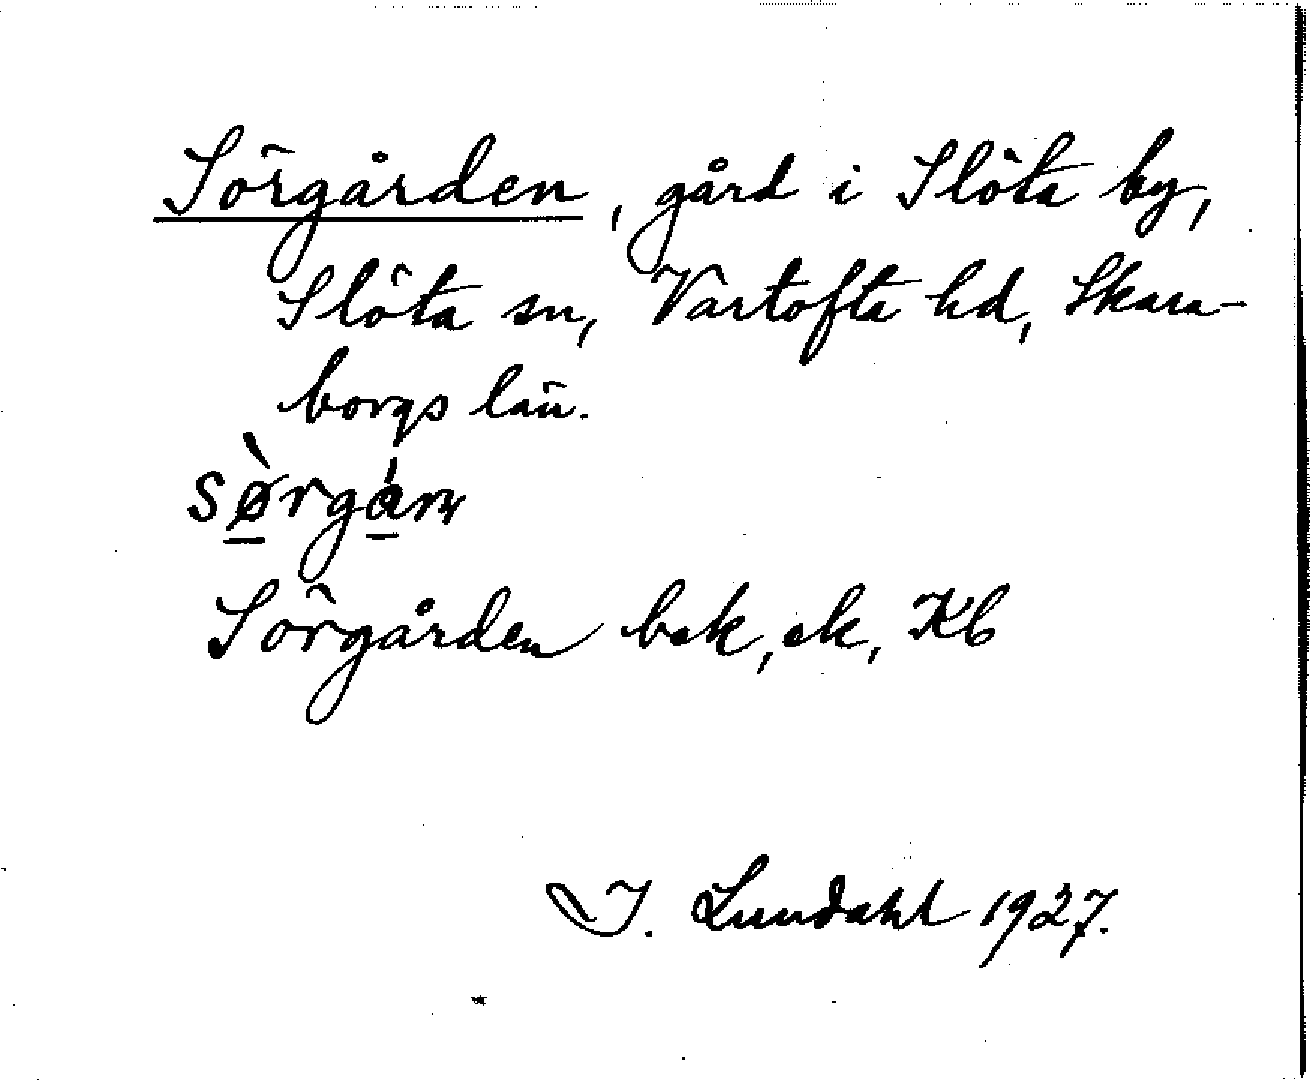 Sörgården, gård i Slöta by,
Slöta sn, Vartofta hd, Skara-
borgs län.
sø̠̀rgá̠ɳ
Sörgården bek, ek, Kb
I. Lundahl 1927.